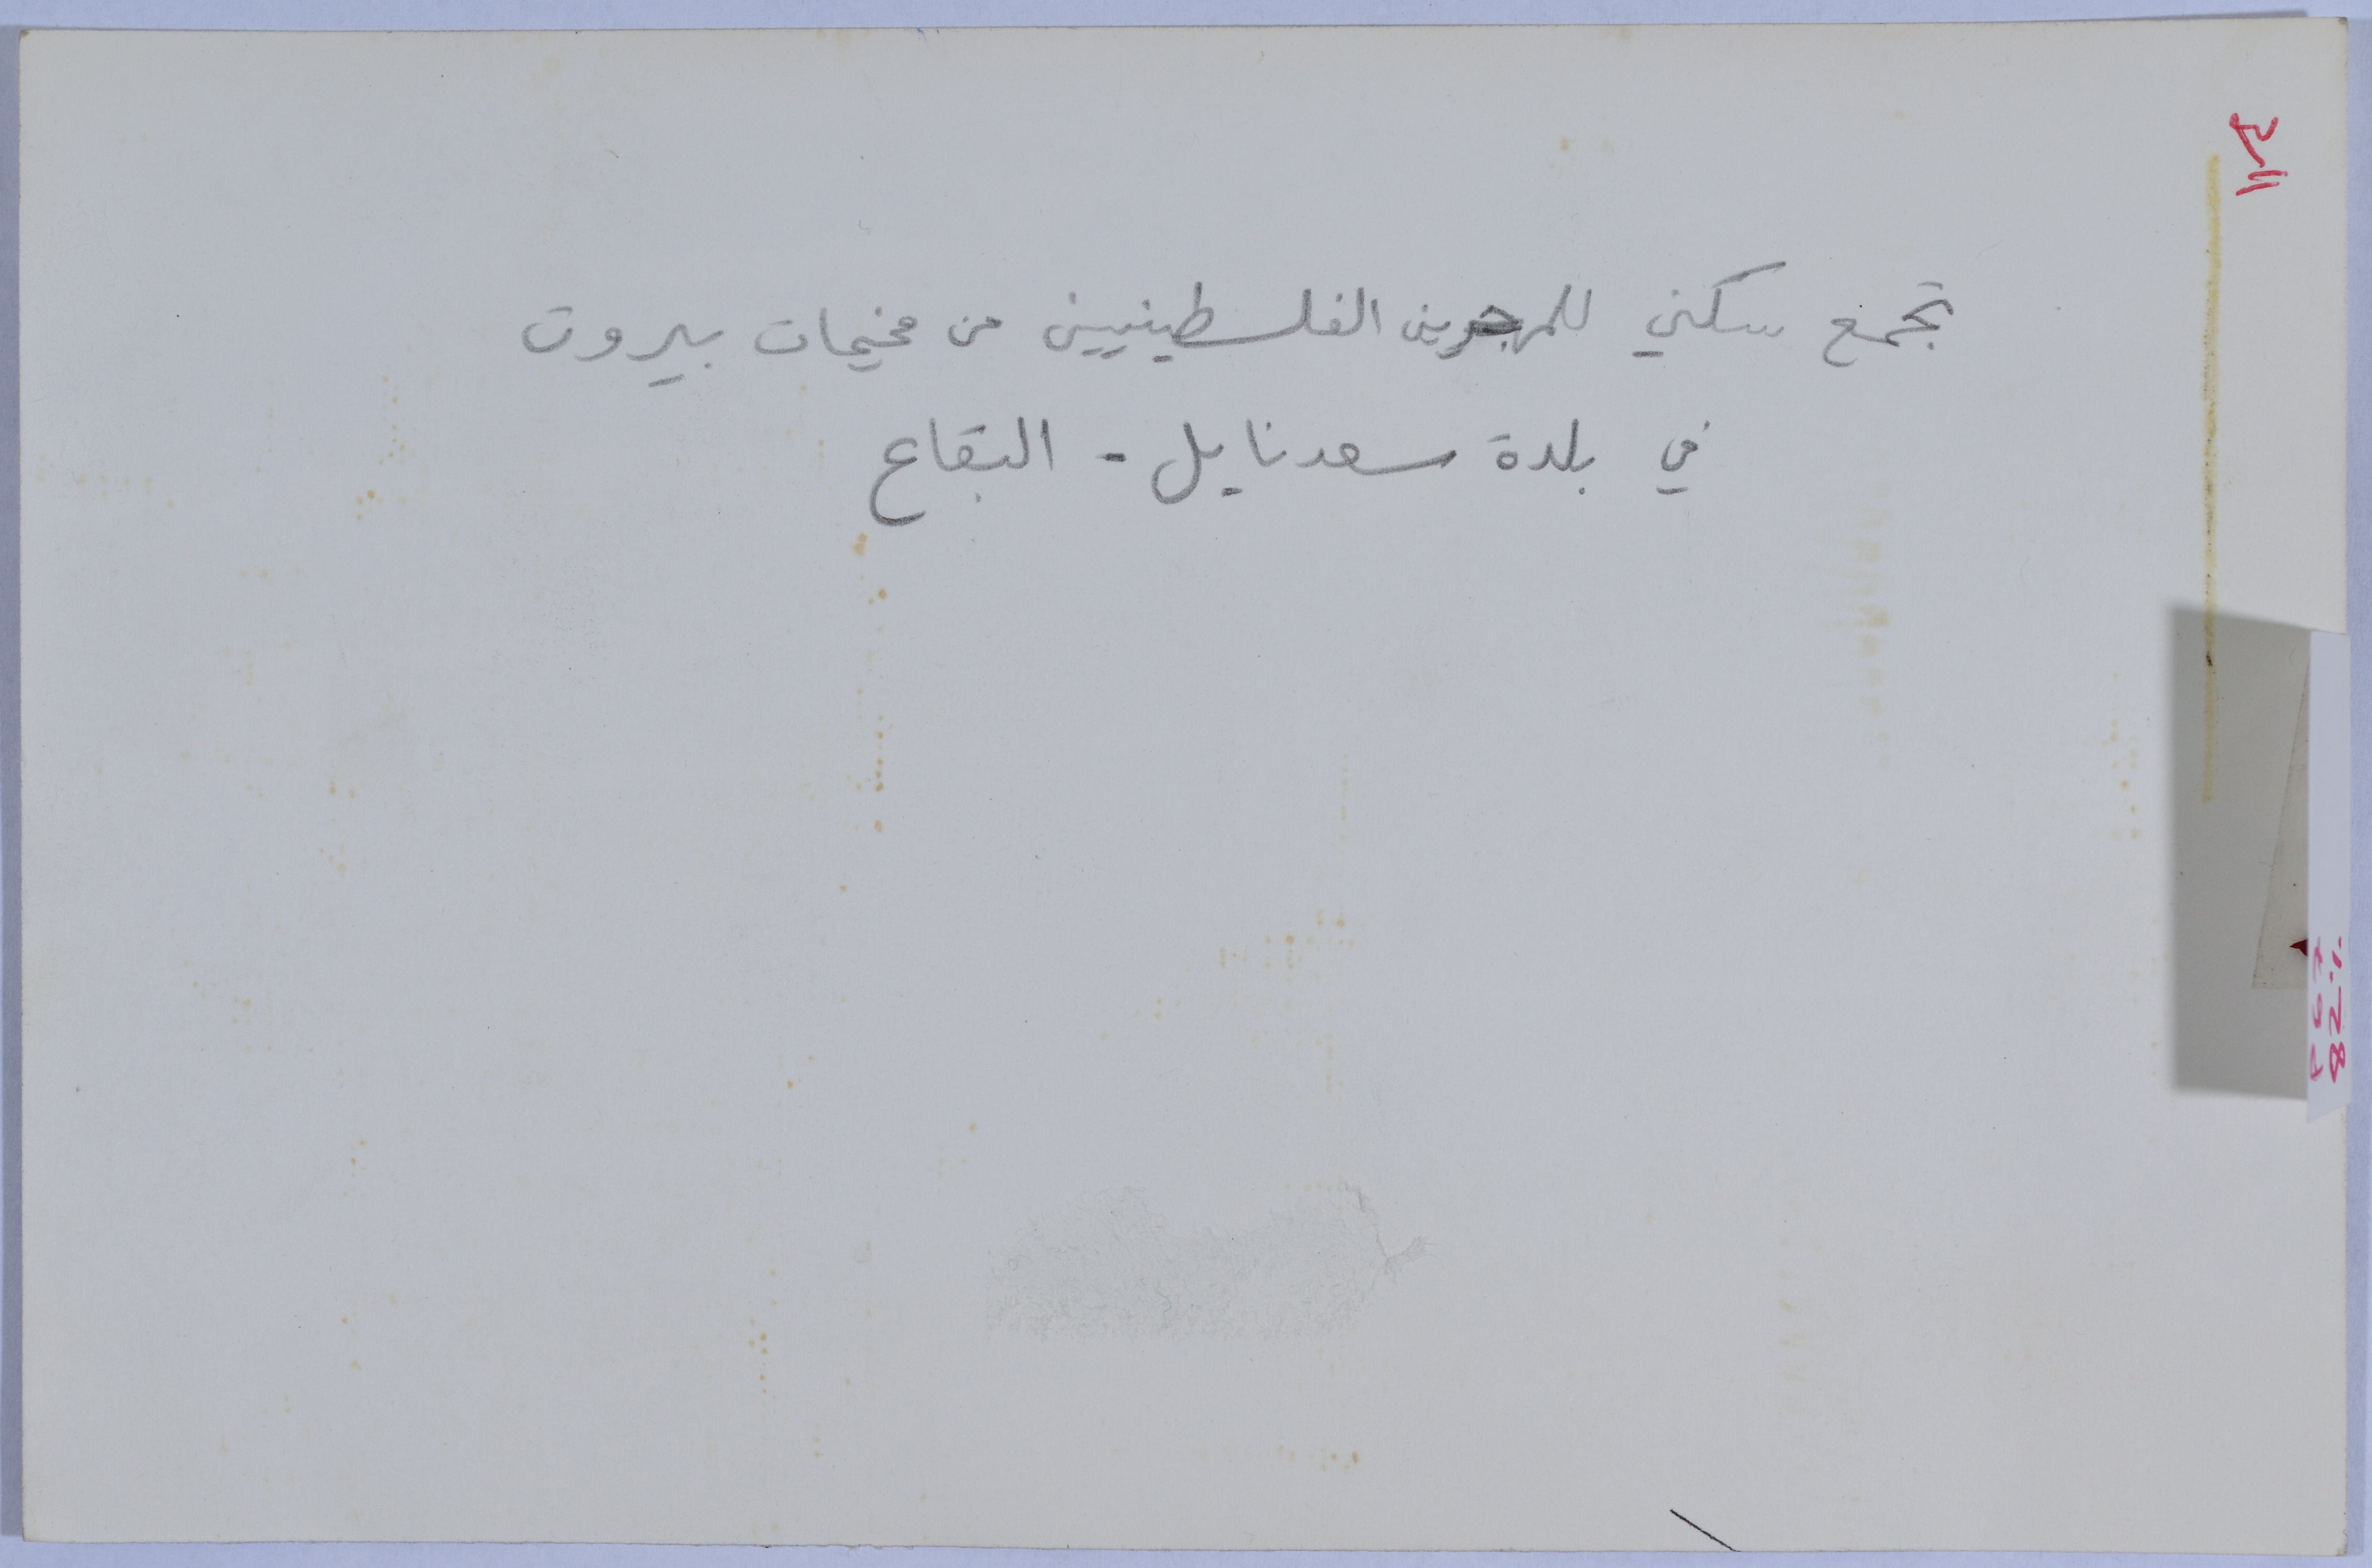 تجمع سكني للمهجرين الفلسطينيين من مخيمات بيروت
في بلدة سعدنايل - البقاع